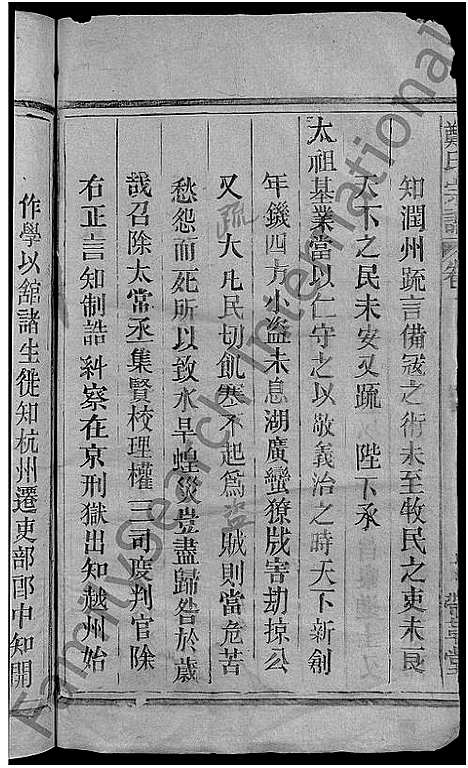 鄭氏宗譜 卷
知潤州疏言備寇之術未至牧民之吏未良
天下之民未安又疏 陛下承
太祖基業當以仁守之以敬義治之時天下新創
年饑四方小盜未息湖廣蠻獠戕害劫掠公
又疏大凡民切飢寒不起為盜賊則當危苦
愁怨而死所以致水旱蝗災豈盡歸咎於歲
哉召除太常丞集賢校理權三司度判官除
右正言知制誥糾察在京刑獄出知越州始
作學以舘諸生徙知杭州遷吏部郎中知開
FamilySearch International